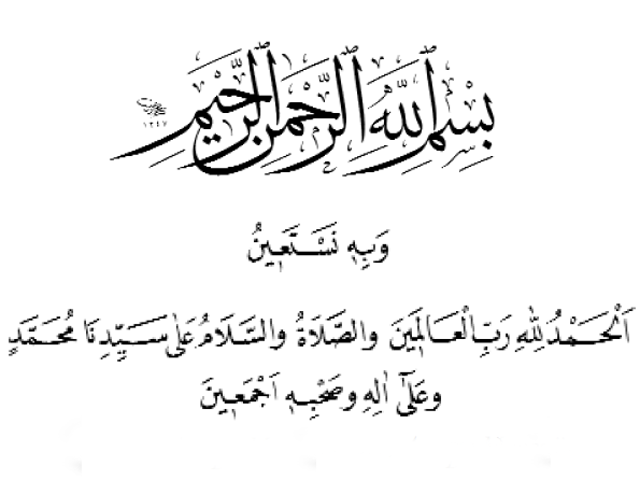 بِسْمِ اللَّهِ الرَّحْمٰنِ الرَّحِيمِ
١٣٤٧
وَبِهٖ نَسْتَعٖينُ
اَلْحَمْدُ لِلّٰهِ رَبِّ الْعَالَمٖينَ وَالصَّلَاةُ وَالسَّلَامُ عَلٰى سَيِّدِنَا مُحَمَّدٍ
وَعَلٰٓى اٰلِهٖ وَصَحْبِهٖ اَجْمَعٖينَ